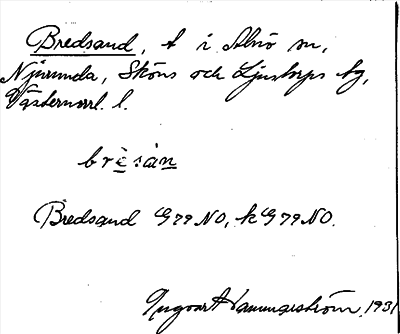 Bredsand, t i Alnö sn,
Njurunda, Sköns och Ljustorps tg,
Västernorrl. l.
brèsàn
Bredsand G79NO, kG79NO.
Ingvart Hammarström, 1931